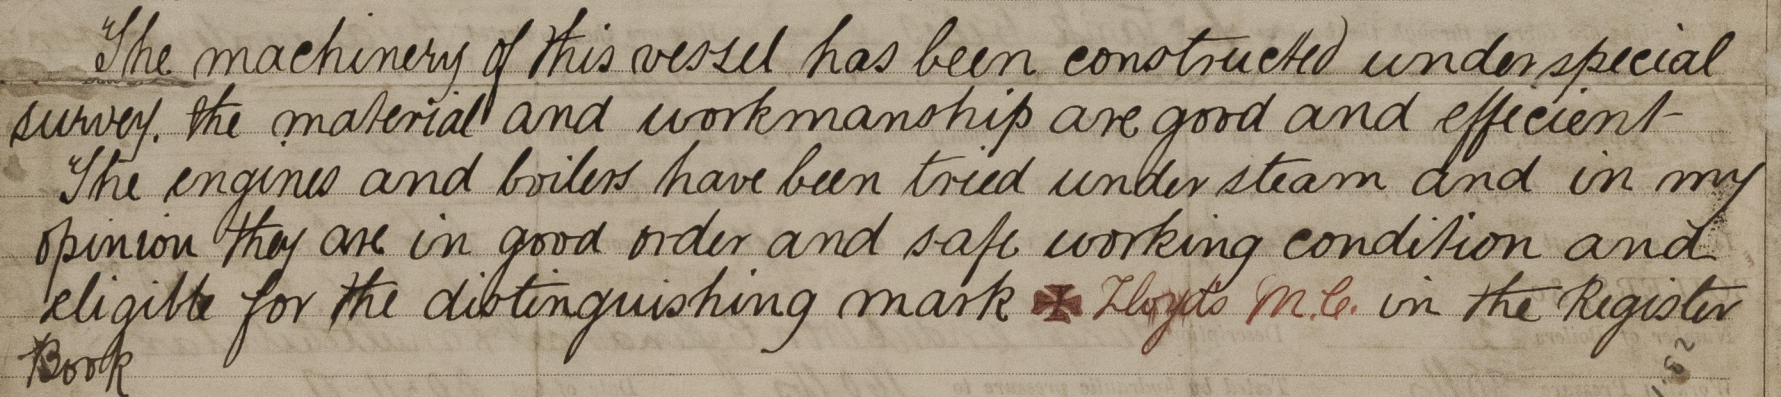 The machinery of this vessel has been constructed under special
survey. the material and workmanship are good and efficient
The engines and boilers have been tried under steam and in my
opinion they are in good order and safe working condition and
eligible for the distinguishing mark ✠ Lloyd's M.C. in the Register
Book